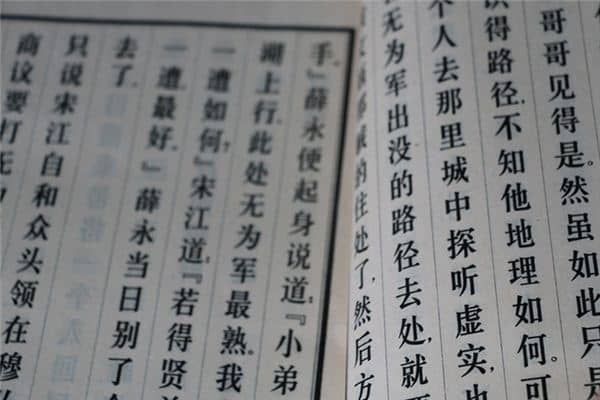 哥哥见得是。然虽如此,只是
识得路径。不知他地理如何。可
个人去那里城中探听虚实,也
无为军出没的路径去处,就要
贼的住处了,然后方
手。』薛永便起身说道:『小弟
湖上行,此处无为军最熟。我
一遭如何?』宋江道:『若得贤
一遭最好。』薛永当日别了
去了。
只说宋江自和众头领在穆
商议要打无